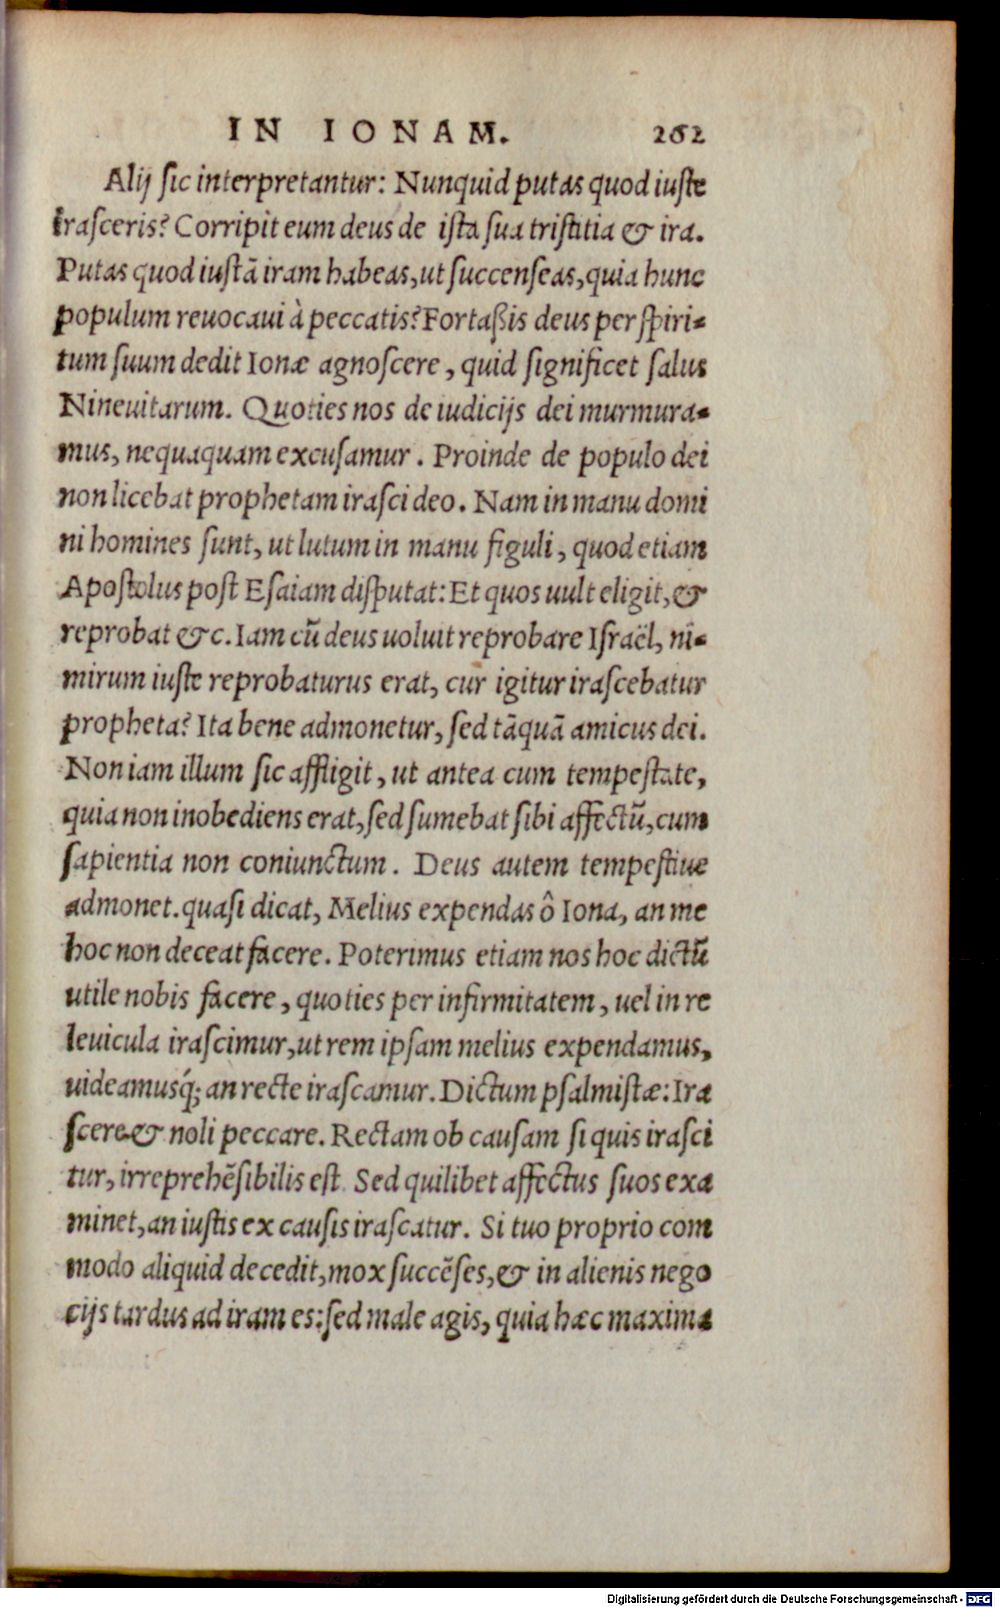 IN IONAM. 262
Alij sic interpretantur: Nunquid putas quod iuste
irasceris? Corripit eum deus de ista sua tristitia & ira.
Putas quod iustā iram habeas, ut succenseas, quia hunc
populum reuocaui à peccatis? Fortaßis deus per spiri-
tum suum dedit Ionæ agnoscere, quid significet salus
Nineuitarum. Quoties nos de iudicijs dei murmura-
mus, nequaquam excusamur. Proinde de populo dei
non licebat prophetam irasci deo. Nam in manu domi
ni homines sunt, ut lutum in manu figuli, quod etiam
Apostolus post Esaiam disputat: Et quos uult eligit, &
reprobat &c. Iam cũ deus uoluit reprobare Israël, ni-
mirum iuste reprobaturus erat, cur igitur irascebatur
propheta? Ita bene admonetur, sed tāquā amicus dei.
Non iam illum sic affligit, ut antea cum tempestate,
quia non inobediens erat, sed sumebat sibi affectũ, cum
sapientia non coniunctum. Deus autem tempestiue
admonet. quasi dicat, Melius expendas ô Iona, an me
hoc non deceat facere. Poterimus etiam nos hoc dictũ
utile nobis facere, quoties per infirmitatem, uel in re
leuicula irascimur, ut rem ipsam melius expendamus,
uideamusq́; an recte irascamur. Dictum psalmistæ: Ira
scere & noli peccare. Rectam ob causam si quis irasci
tur, irreprehēsibilis est. Sed quilibet affectus suos exa
minet, an iustis ex causis irascatur. Si tuo proprio com
modo aliquid decedit, mox succēses, & in alienis nego
cijs tardus ad iram es: sed male agis, quia hæc maxima
Digitalisierung gefördert durch die Deutsche Forschungsgemeinschaft - DFG